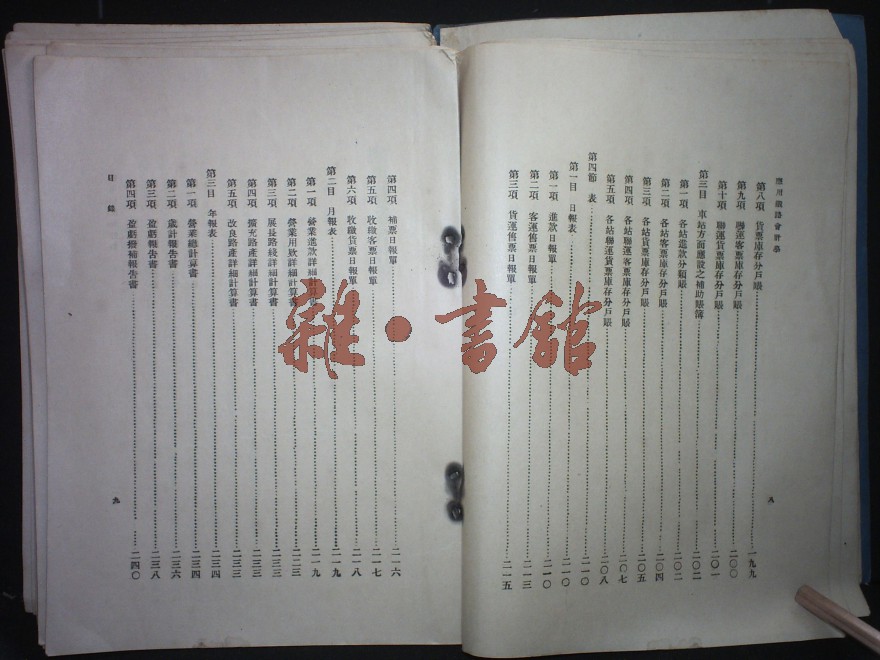 應用鐵路會計學
第八項 貨票庫存分戶賬……一九九
第九項 聯運客票庫存分戶賬……二〇〇
第十項 聯運貨票庫存分戶賬……二〇一
第三目 車站方面應設之補助賬簿……二〇二
第一項 各站進款分類賬……二〇二
第二項 各站客票庫存分戶賬……二〇四
第三項 各站貨票庫存分戶賬……二〇五
第四項 各站聯運客票庫存分戶賬……二〇七
第五項 各站聯運貨票庫存分戶賬……二〇八
第四節 表……二一〇
第一目 日報表……二一〇
第一項 進款日報單……二一〇
第二項 客運售票日報單……二一三
第三項 貨運售票日報單……二一五
八
第四項 補票日報單……二一六
第五項 收繳客票日報單……二一七
第六項 收繳貨票日報單……二一八
第二目 月報表……二一九
第一項 營業進款詳細計算書……二一九
第二項 營業用款詳細計算書……二二三
第三項 展長路綫詳細計算書……二三三
第四項 擴充路產詳細計算書……二三三
第五項 改良路產詳細計算書……二三三
第三目 年報表……二三四
第一項 營業總計算書……二三四
第二項 歲計報告書……二三六
第三項 盈虧報告書……二三八
第四項 盈虧撥補報告書……二四〇
目錄
九
雜·書館